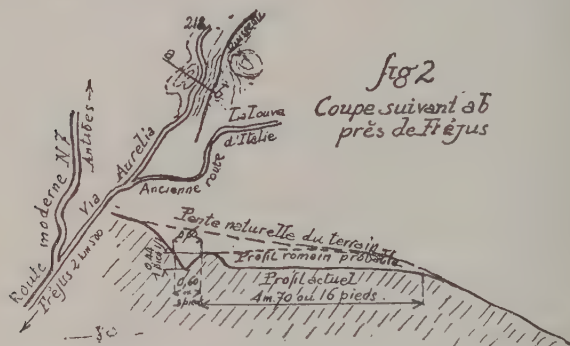 fig 2
Coupe suivant ab
près de Fréjus
218
a
b
La Louve
d'Italie
Ancienne route
Via Aurelia
Antibes
Route moderne N7
Fréjus 2 km 500
Pente naturelle du terrain
Profil romain probable
Profil actuel
4m.70 ou 16 pieds
0,60
0,44